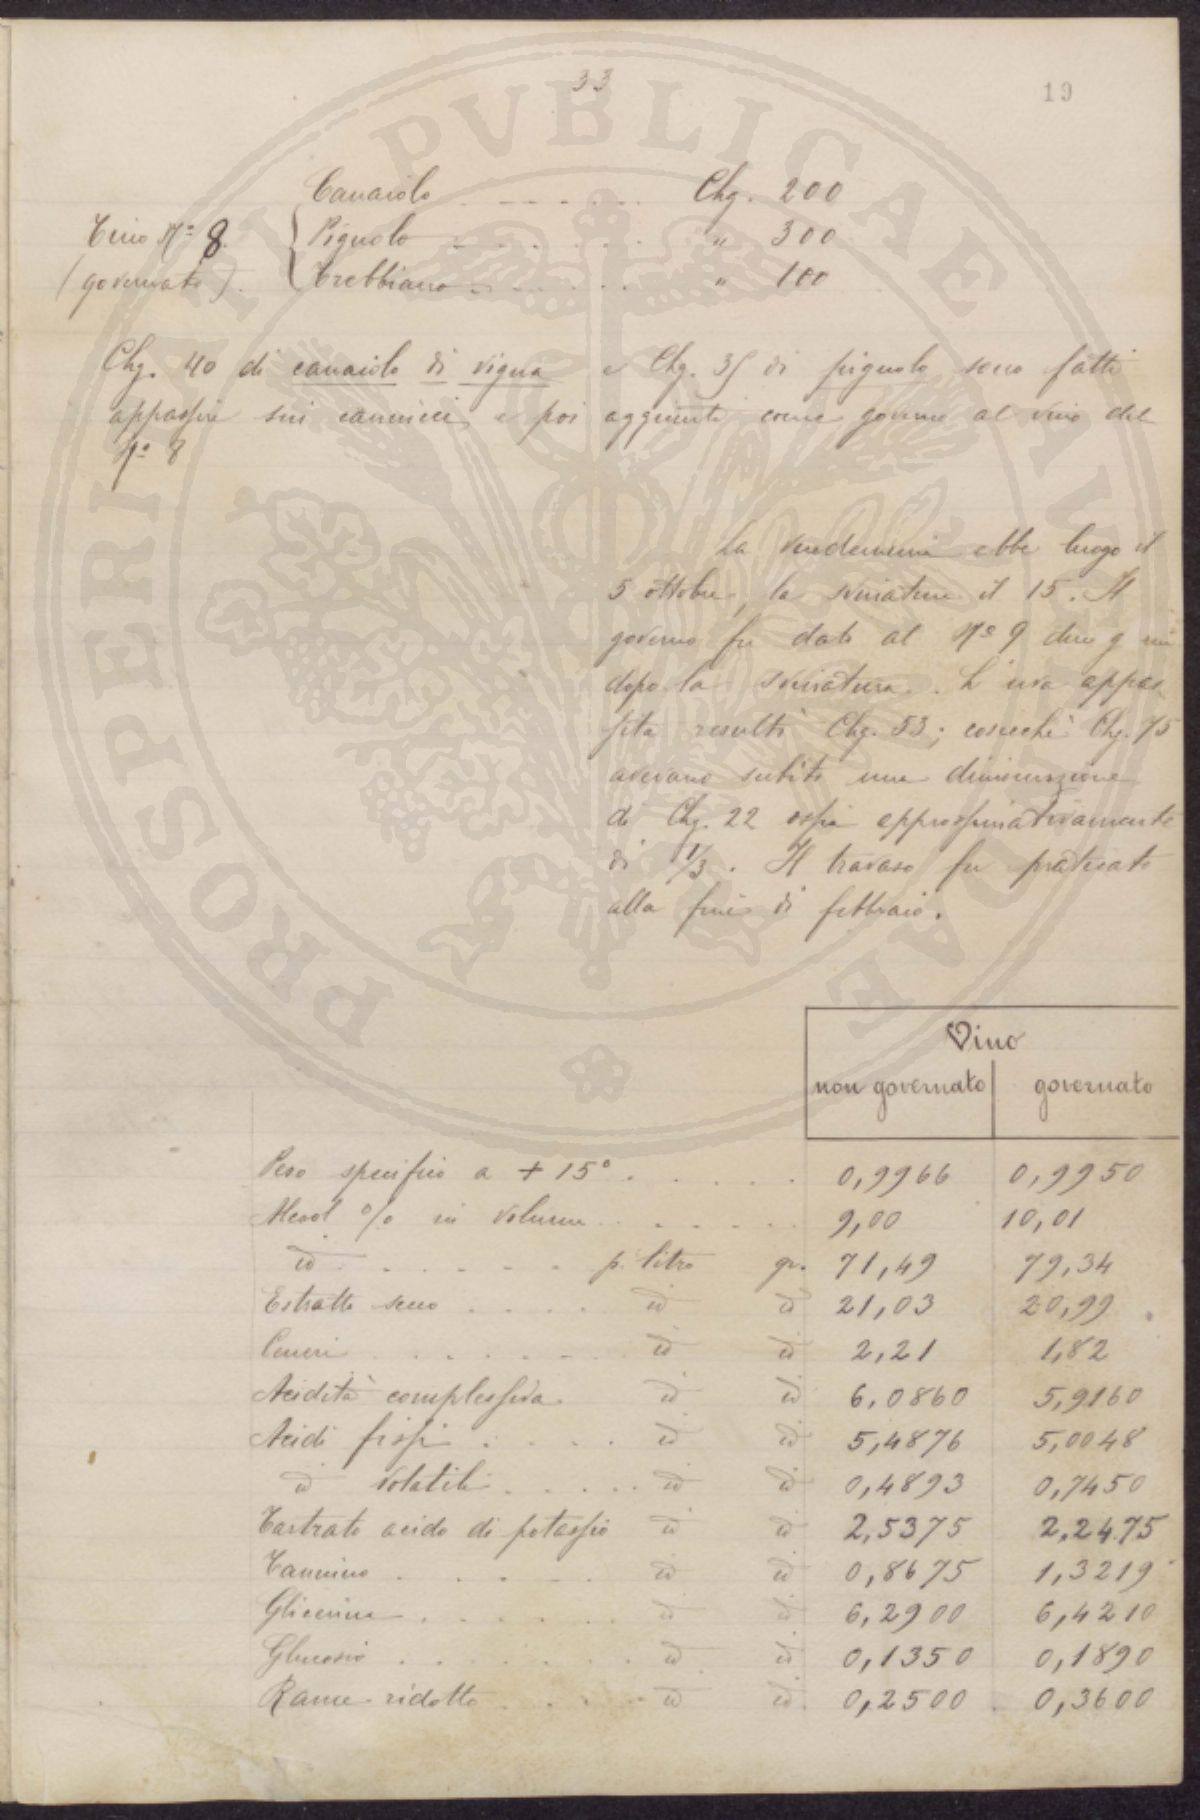 33
19
Canaiolo . . . . . . . Chg. 200
Tino Nº 8. Pignolo . . . . . . . " 300
(governato). Trebbiano . . . . . . " 100
Chg. 40 di canaiolo di vigna e Chg. 35 di pignolo sono fatti
appassire sui cannicci e poi aggiunti come governo al vino del
Nº 8
La vendemmia ebbe luogo il
5 ottobre, la svinatura il 15. Il
governo fu dato al Nº 9 due g
dopo la svinatura. L'uva appas
sita resultò Chg. 53; cosicchè Chg. 75
avevano subito una diminuzione
di Chg. 22 ossia approssimativamente
di 1/3. Il travaso fu praticato
alla fine di febbraio.
Vino
non governato governato
Peso specifico a + 15° . . . . . 0,9966 0,9950
Alcool % in volume . . . . . . 9,00 10,01
id . . . . . . p. litro gr. 71,49 79,34
Estratto secco . . . . id id 21,03 20,99
Ceneri . . . . . . id id 2,21 1,82
Acidità complessiva. id id 6,0860 5,9160
Acidi fissi . . . . id id 5,4876 5,0048
id volatili . . . . . id id 0,4893 0,7450
Tartrato acido di potassio id id 2,5375 2,2475
Tannino . . . . . id id 0,8675 1,3219
Glicerina . . . . . id id. 6,2900 6,4210
Glucosio . . . . . . id id. 0,1350 0,1890
Rame ridotto . . . . id id. 0,2500 0,3600
PROSPERITATI PVBLICAE AVGENDAE